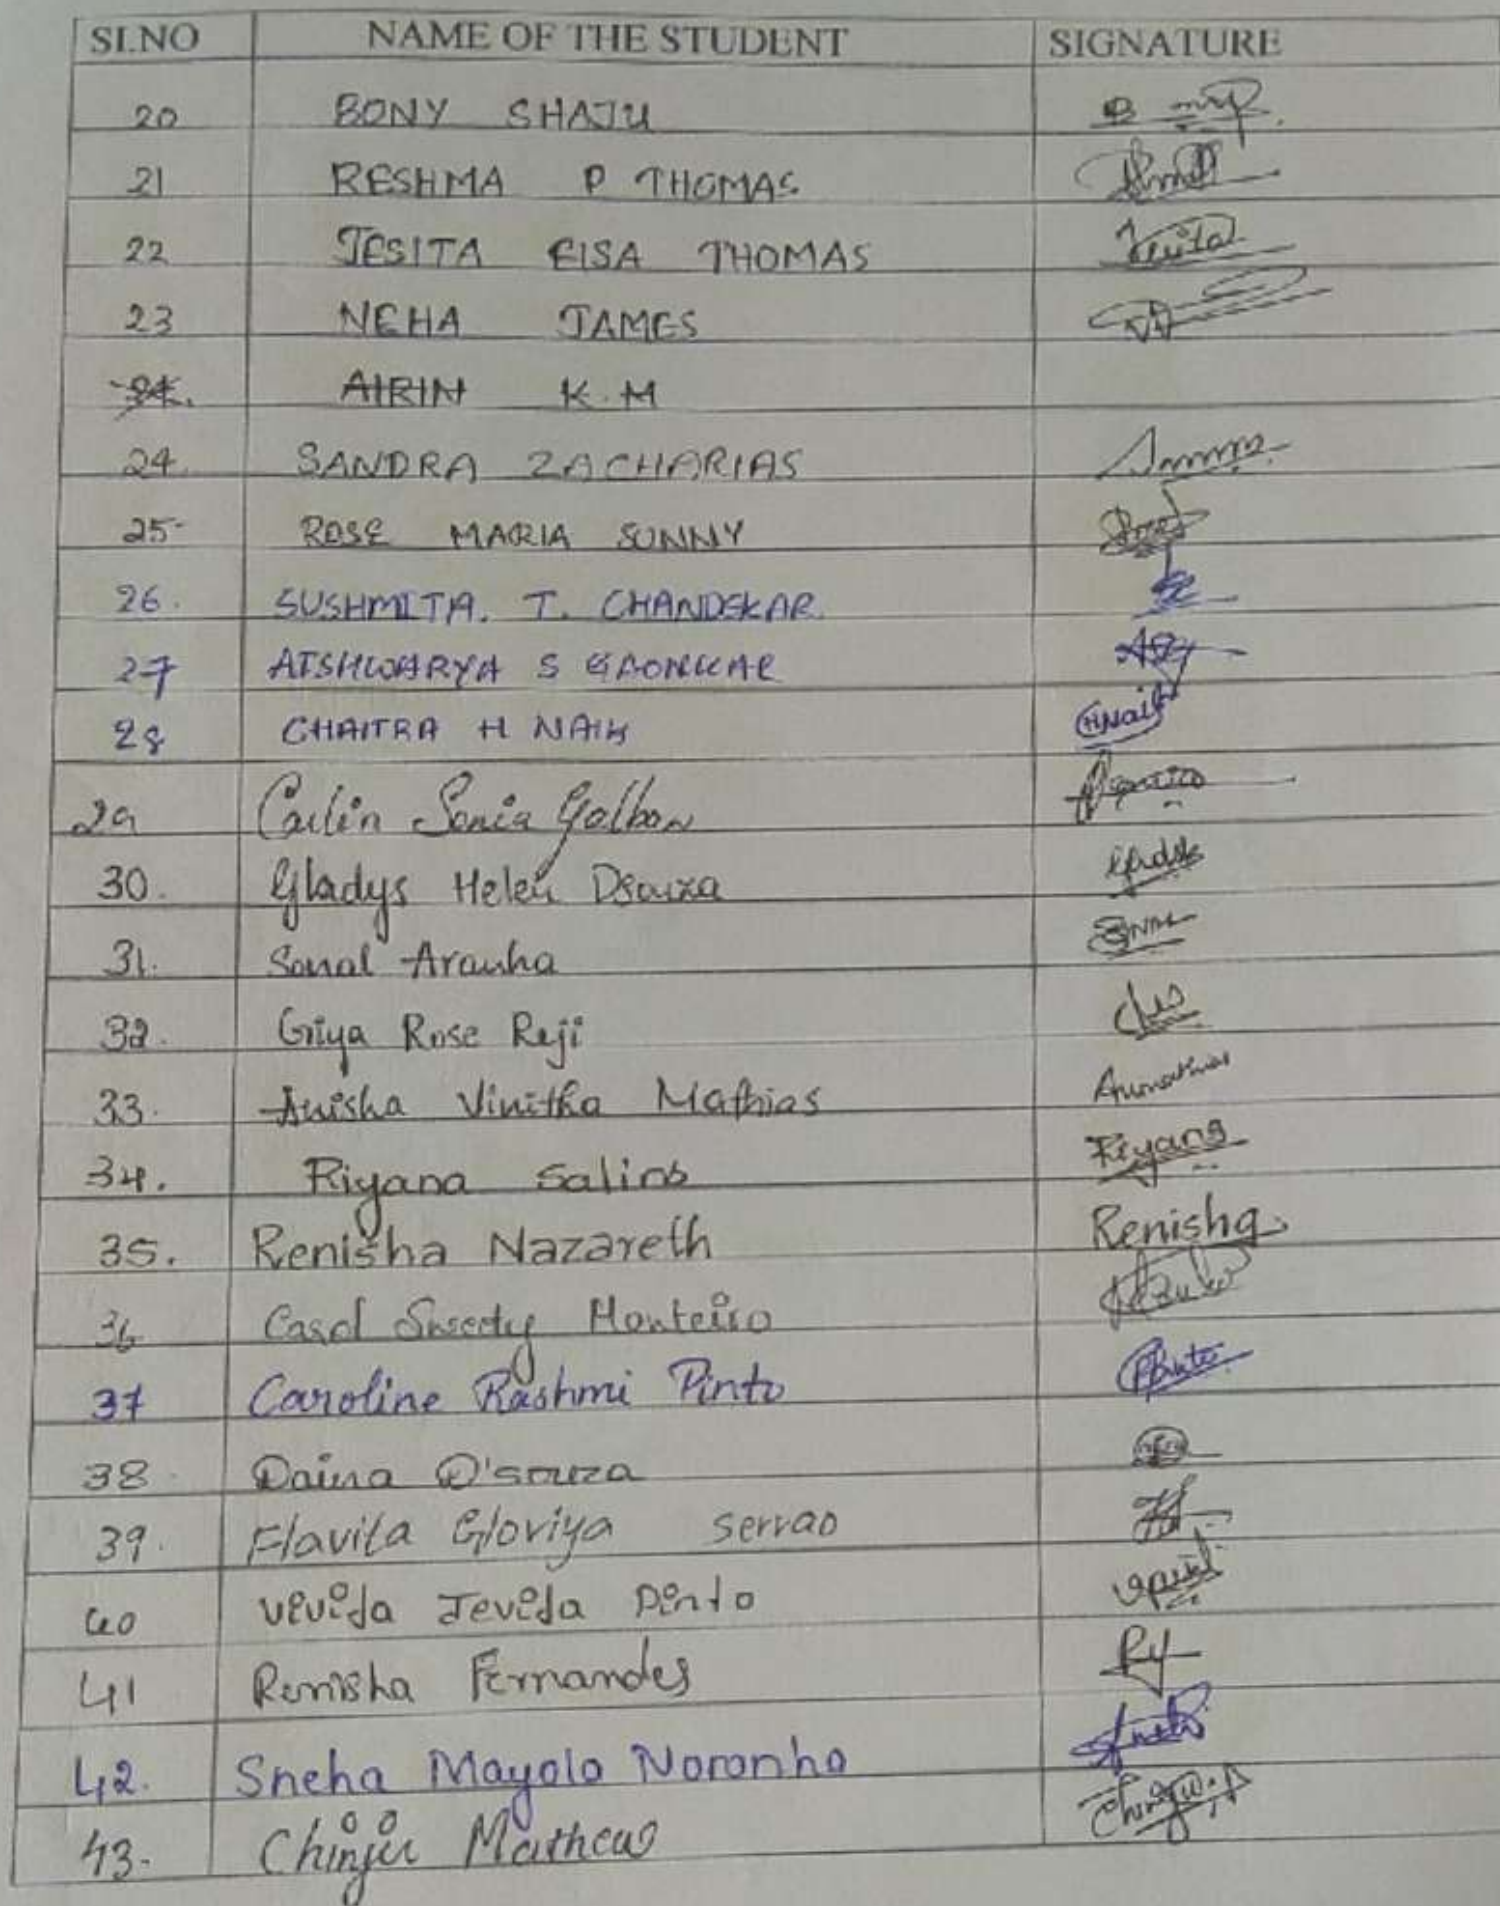 SI.NO NAME OF THE STUDENT SIGNATURE
20 BONY SHAJU
21 RESHMA P THOMAS
22 JESITA EISA THOMAS Jesita
23 NEHA JAMES
24. AIRIN K.M
24. SANDRA ZACHARIAS
25- ROSE MARIA SUNNY
26. SUSHMITA. T. CHANDEKAR.
27 AISHWARYA S GAONKAR
28 CHAITRA H NAIK CHNaik
29 Carlin Sonia Galbao
30. Gladys Helen Dsouza
31. Sonal Aranha
32. Griya Rose Reji
33. Anisha Vinitha Mathias
34. Riyana Salins Riyana
35. Renisha Nazareth Renisha
36 Carol Sweety Monteiro
37 Caroline Rashmi Pinto
38 Daina D'souza
39. Flavita Gloriya Serrao
40 Vivida Jevida Pinto
41 Renisha Fernandes
42. Sneha Mayola Noronha
43. Chinju Mathew